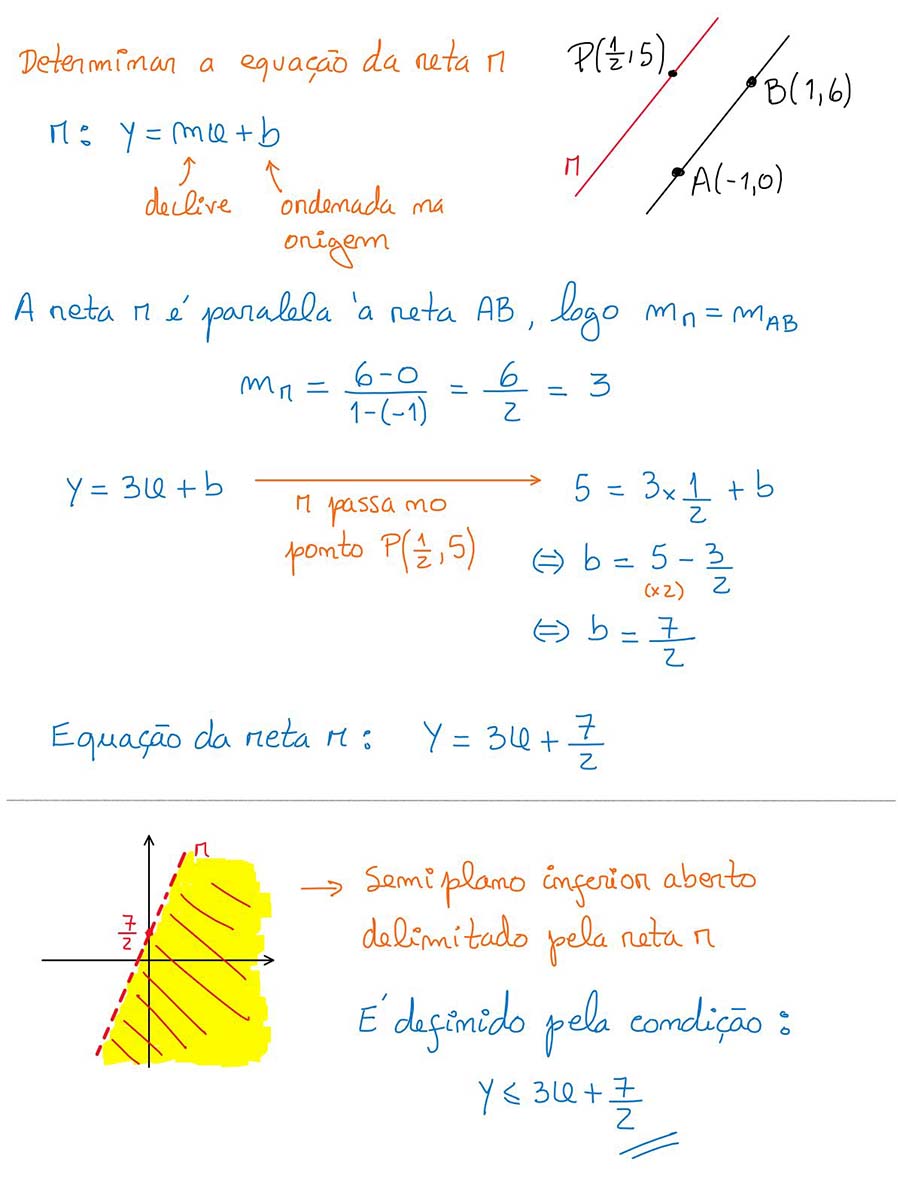 Determinar a equação da reta r
P(1/2, 5)
B(1, 6)
r
A(-1, 0)
r: y = mx + b
declive
ordenada na
origem
A reta r é paralela à reta AB, logo m_r = m_AB
m_r = (6-0)/(1-(-1)) = 6/2 = 3
y = 3x + b
r passa no
ponto P(1/2, 5)
5 = 3 × 1/2 + b
⇔ b = 5 - 3/2
(×2)
⇔ b = 7/2
Equação da reta r: y = 3x + 7/2
r
7/2
→ Semiplano inferior aberto
delimitado pela reta r
É definido pela condição:
y ⩽ 3x + 7/2